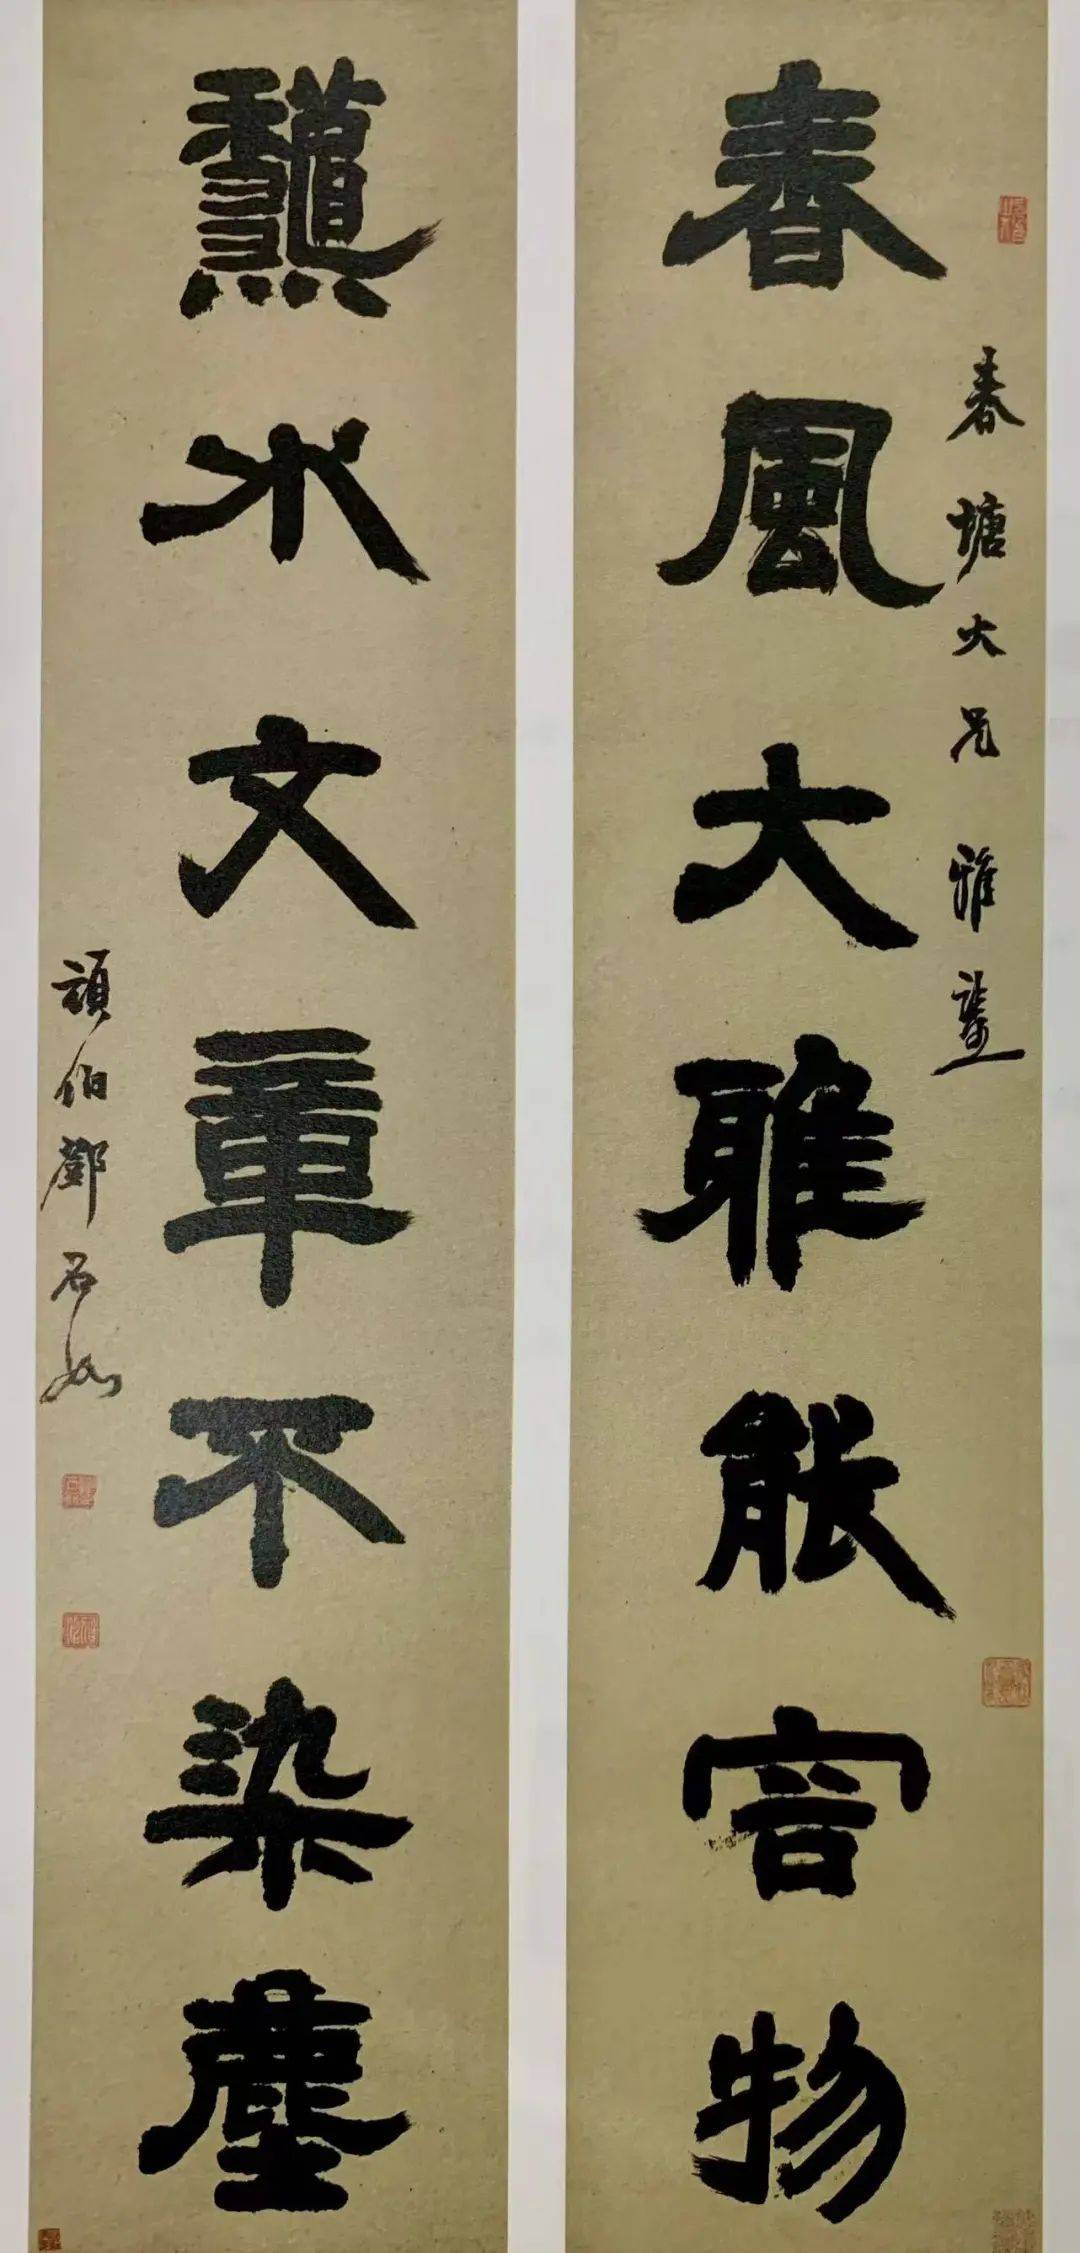 春風大雅能容物
春塘大兄雅鑒
龝水文章不染塵
頑伯鄧石如